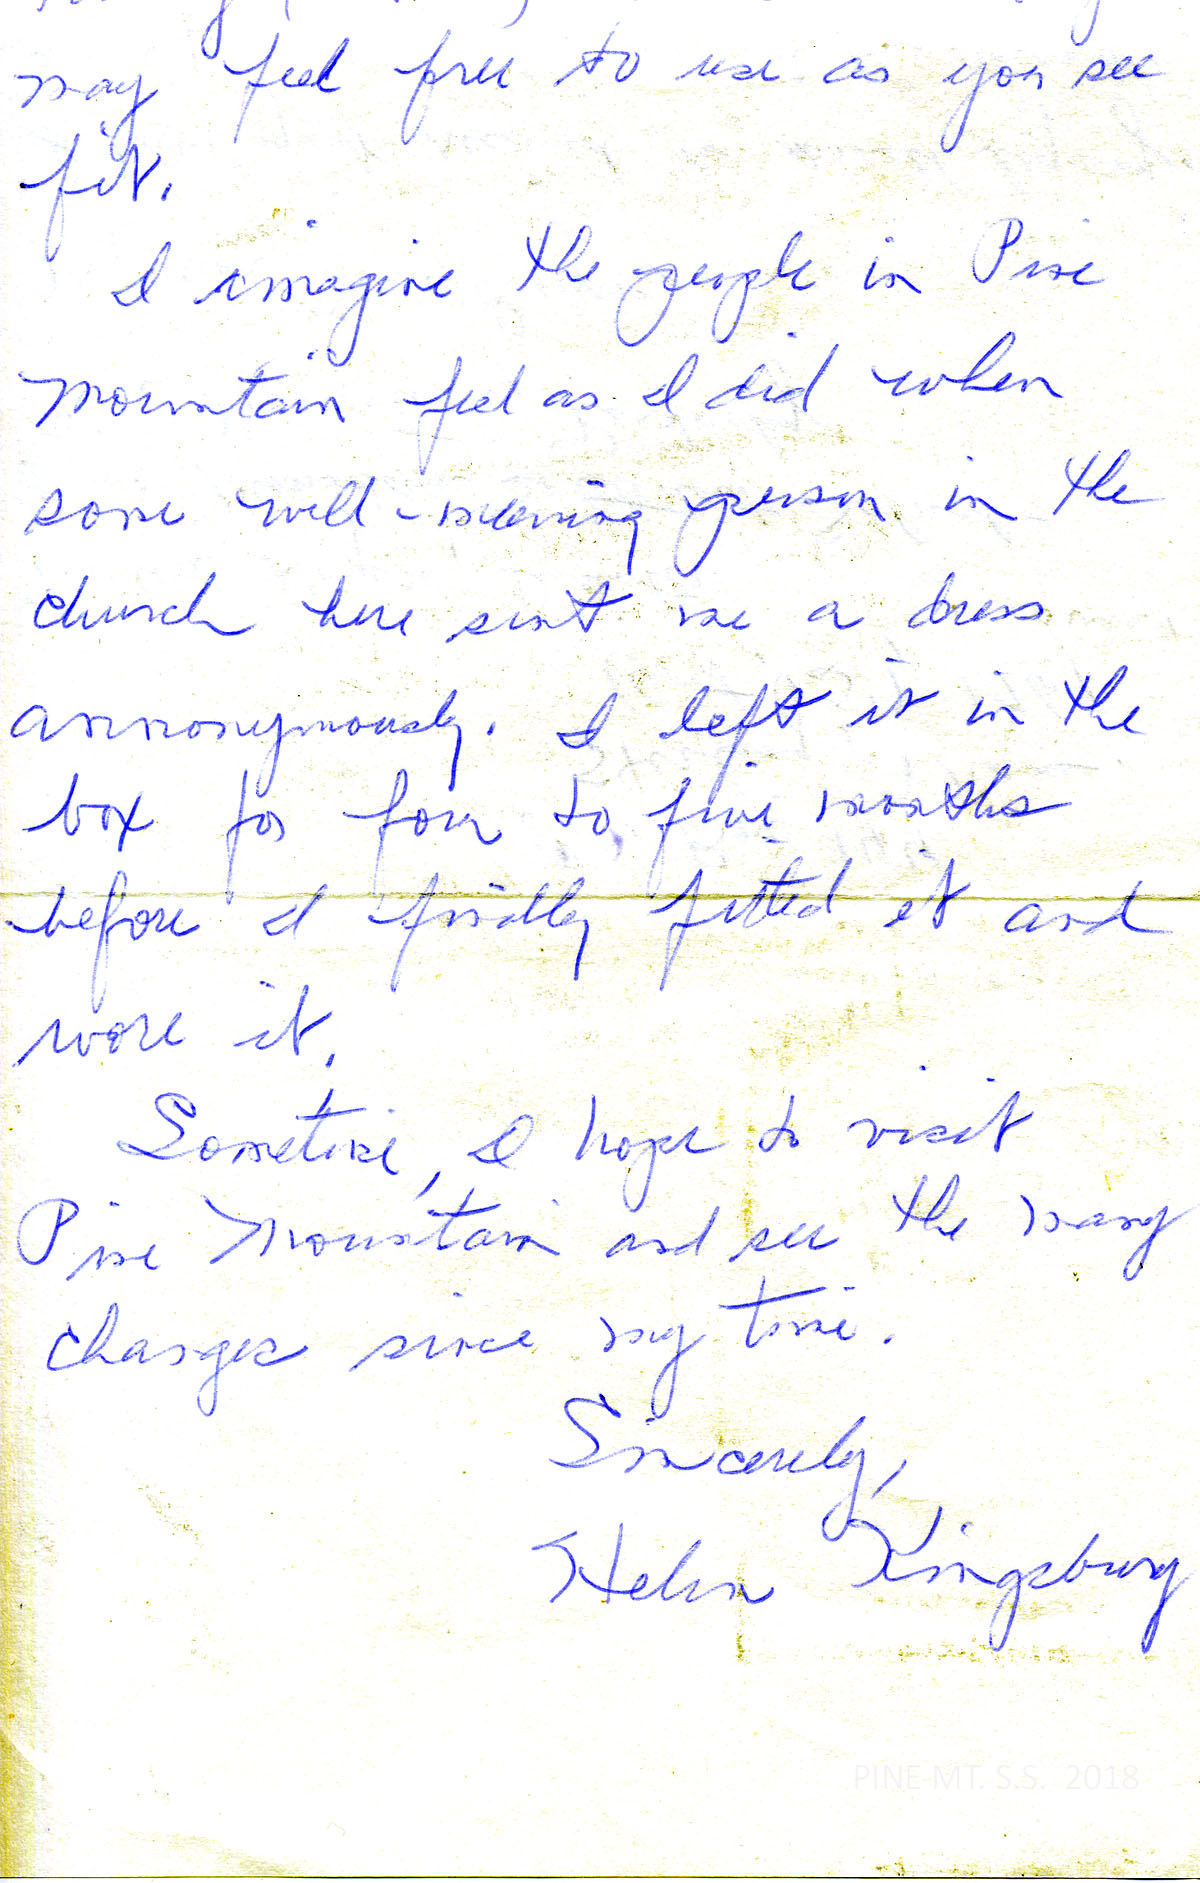 may feel free to use as you see
fit.
I imagine the people in Pine
Mountain feel as I did when
some well-meaning person in the
church here sent me a dress
annonymously. I left it in the
box for four to five months
before I finally fitted it and
wore it.
Sometime, I hope to visit
Pine Mountain and see the many
changes since my time.
Sincerely,
Helen Kingsbury
PINE MT. S.S. 2018